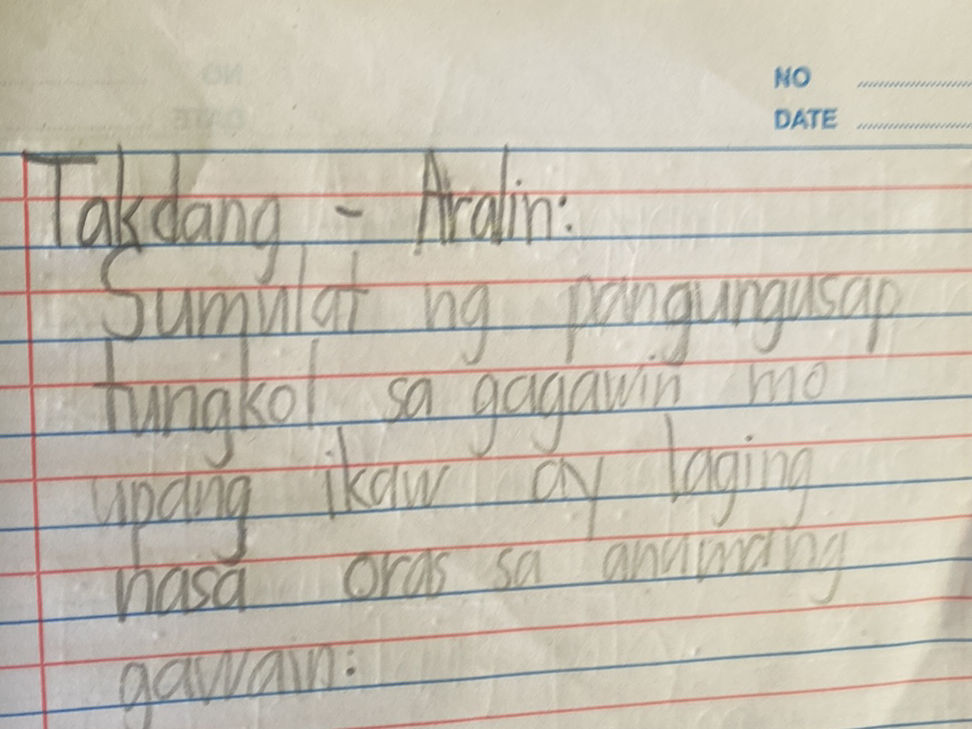 NO
DATE
Takdang - Aralin:
Sumulat ng pangungusap
tungkol sa gagawin mo
upang ikaw ay laging
nasa oras sa anumang
gawain: